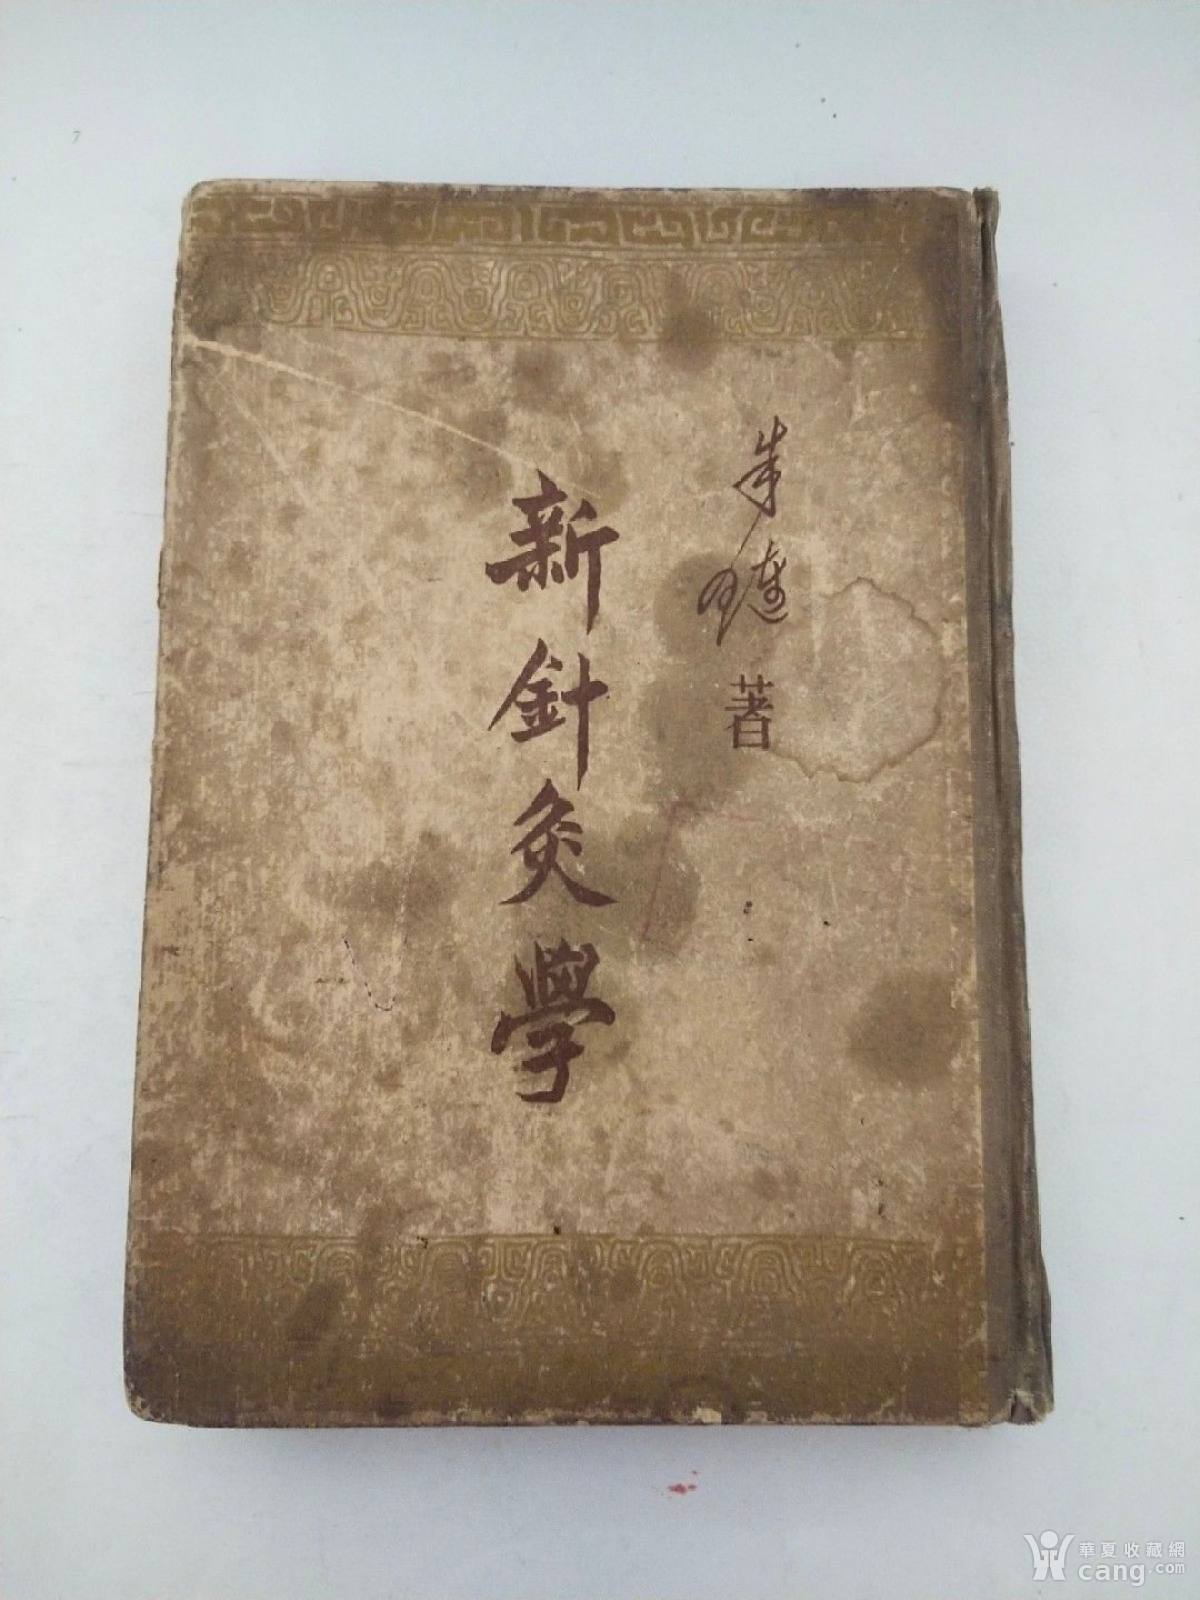 朱璉
著
新針灸學
華夏收藏網
cang.com